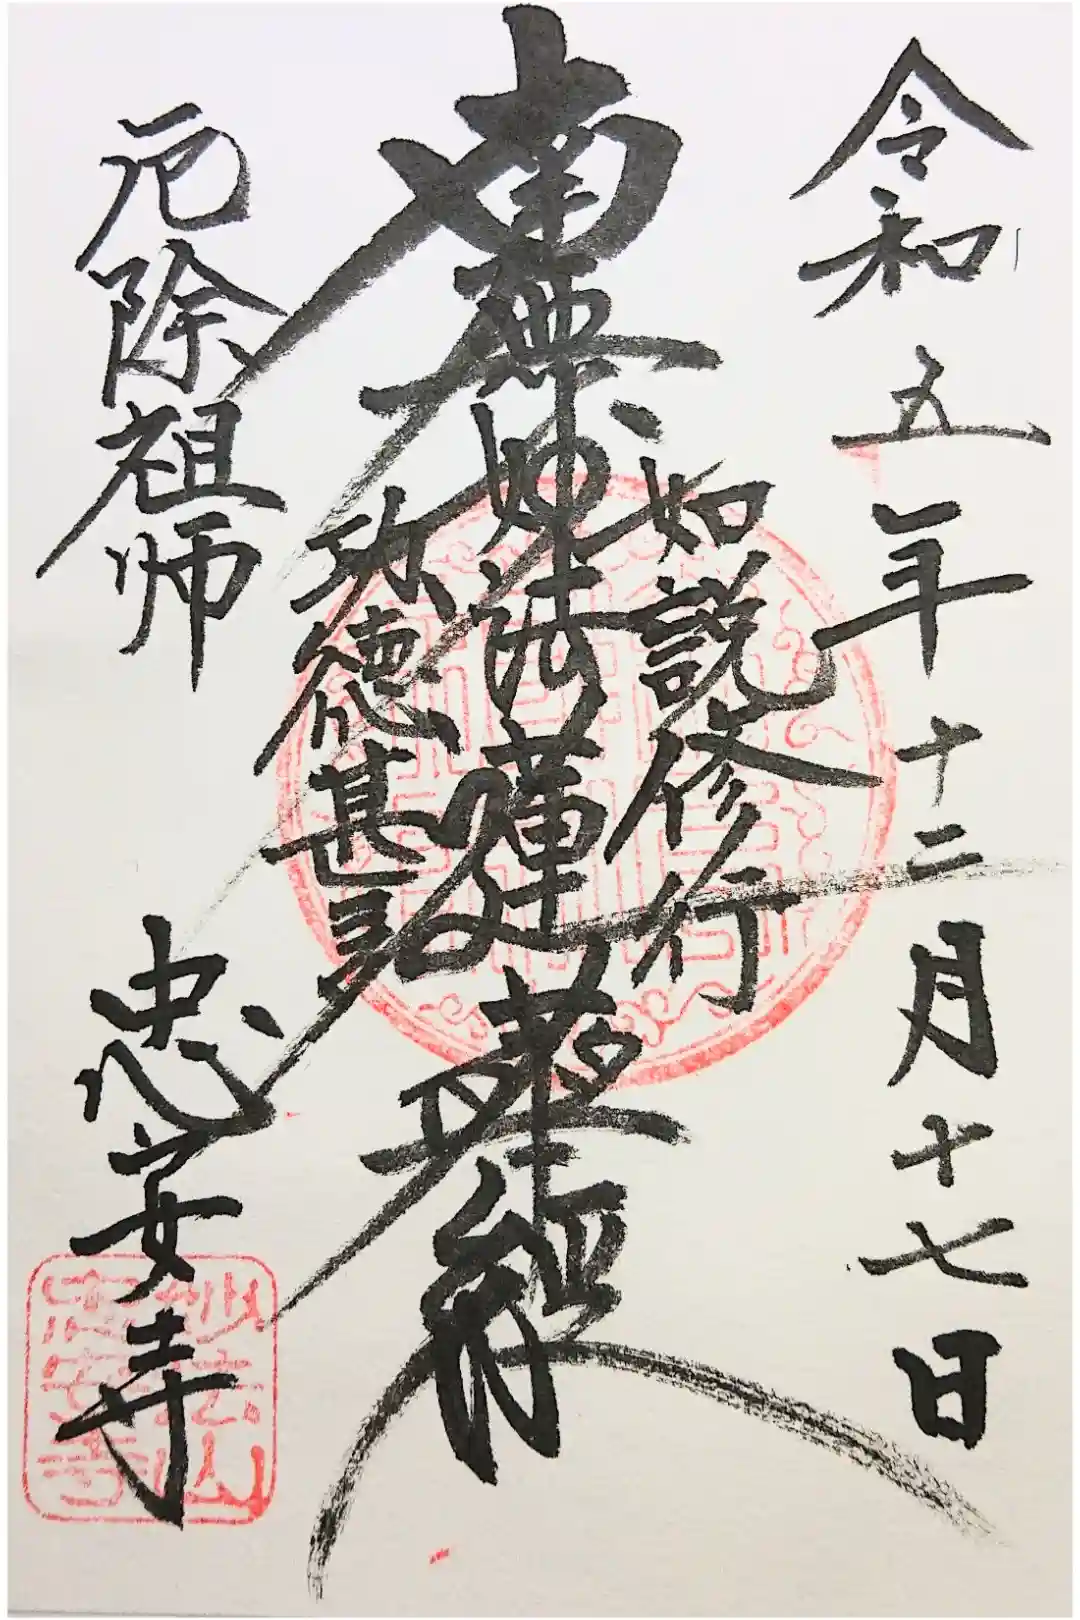 令和五年十二月十七日
如説修行
南無妙法蓮華経
功徳甚多
厄除祖师
忠安寺
妙法山
忠安寺